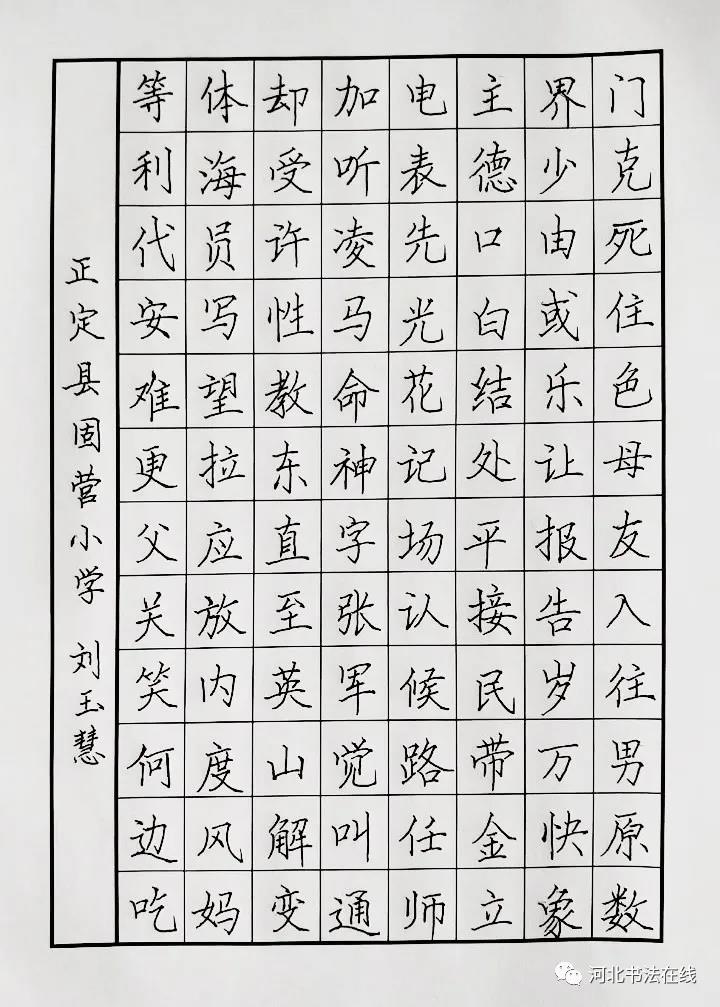 门克死住色母友入往男原数
界少由或乐让报告岁万快象
主德口白结处平接民带金立
电表先光花记场认候路任师
加听凌马命神字张军觉叫通
却受许性教东直至英山解变
体海员写望拉应放内度风妈
等利代安难更父关笑何边吃
正定县固营小学 刘玉慧
河北书法在线